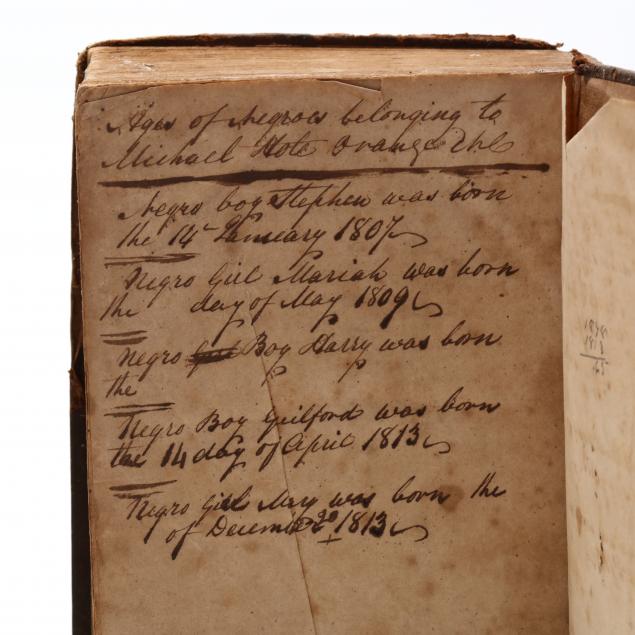 Ages of Negroes belonging to
Michael Holt Orange
Negro boy Stephen was born
the 14 January 1807
Negro Girl Mariah was born
the day of May 1809
Negro Boy Harry was born
the
Negro Boy Guilford was born
the 14 day of April 1813
Negro Girl Mary was born the
of December 20 1813